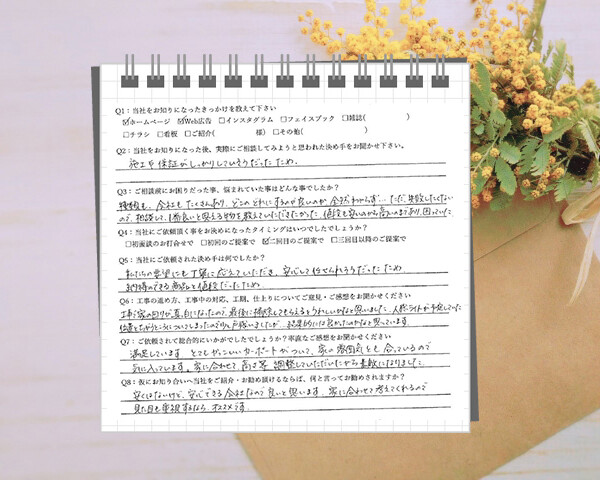 Q1：当社をお知りになったきっかけを教えて下さい
☑ホームページ ☑Web広告 □インスタグラム □フェイスブック □雑誌( )
□チラシ □看板 □ご紹介( 様) □その他( )
Q2：当社をお知りになった後、実際にご相談してみようと思われた決め手をお聞かせ下さい。
施工や保証がしっかりしていそうだったため。
Q3：ご相談前にお困りだった事、悩まれていた事はどんな事でしたか？
種類も、会社もたくさんあり、どこのどれにするのが良いのか全然わからず…ただ、失敗したくない
ので、相談して1番良いと思える物を教えていただきたかった。値段も安いのから高いのまであり、困っていた。
Q4：当社にご依頼頂く事をお決めになったタイミングはいつでしたでしょうか？
□初面談のお打合せで □初回のご提案で ☑二回目のご提案で □三回目以降のご提案で
Q5：当社にご依頼された決め手は何でしたか？
私たちの要望にも丁寧に応えていただき、安心して任せられそうだったため
納得のできる商品と値段だったため
Q6：工事の進め方、工事中の対応、工期、仕上りについてご意見・ご感想をお聞かせください
工事で家の回りが真白になったので、最後に掃除してもらえるとうれしいかなと思いました。人感ライトが予定していた
位置とちがうところについてしまったので少し戸惑いましたが、結果的には良かったのかなと思っています。
Q7：ご依頼されて総合的にいかがでしたでしょうか？率直なご感想をお聞かせください
満足しています。とてもかっこいいカーポートがついて、家の雰囲気とも合っているので
気に入っています。家に合わせて高さ等調整していただいたから素敵になりました。
Q8：仮にお知り合いへ当社をご紹介・お勧め頂けるならば、何と言ってお勧めされますか？
安くはないけど、安心できる会社なので良いと思います。家に合わせて考えてくれるので
見た目も重視するなら、オススメです。